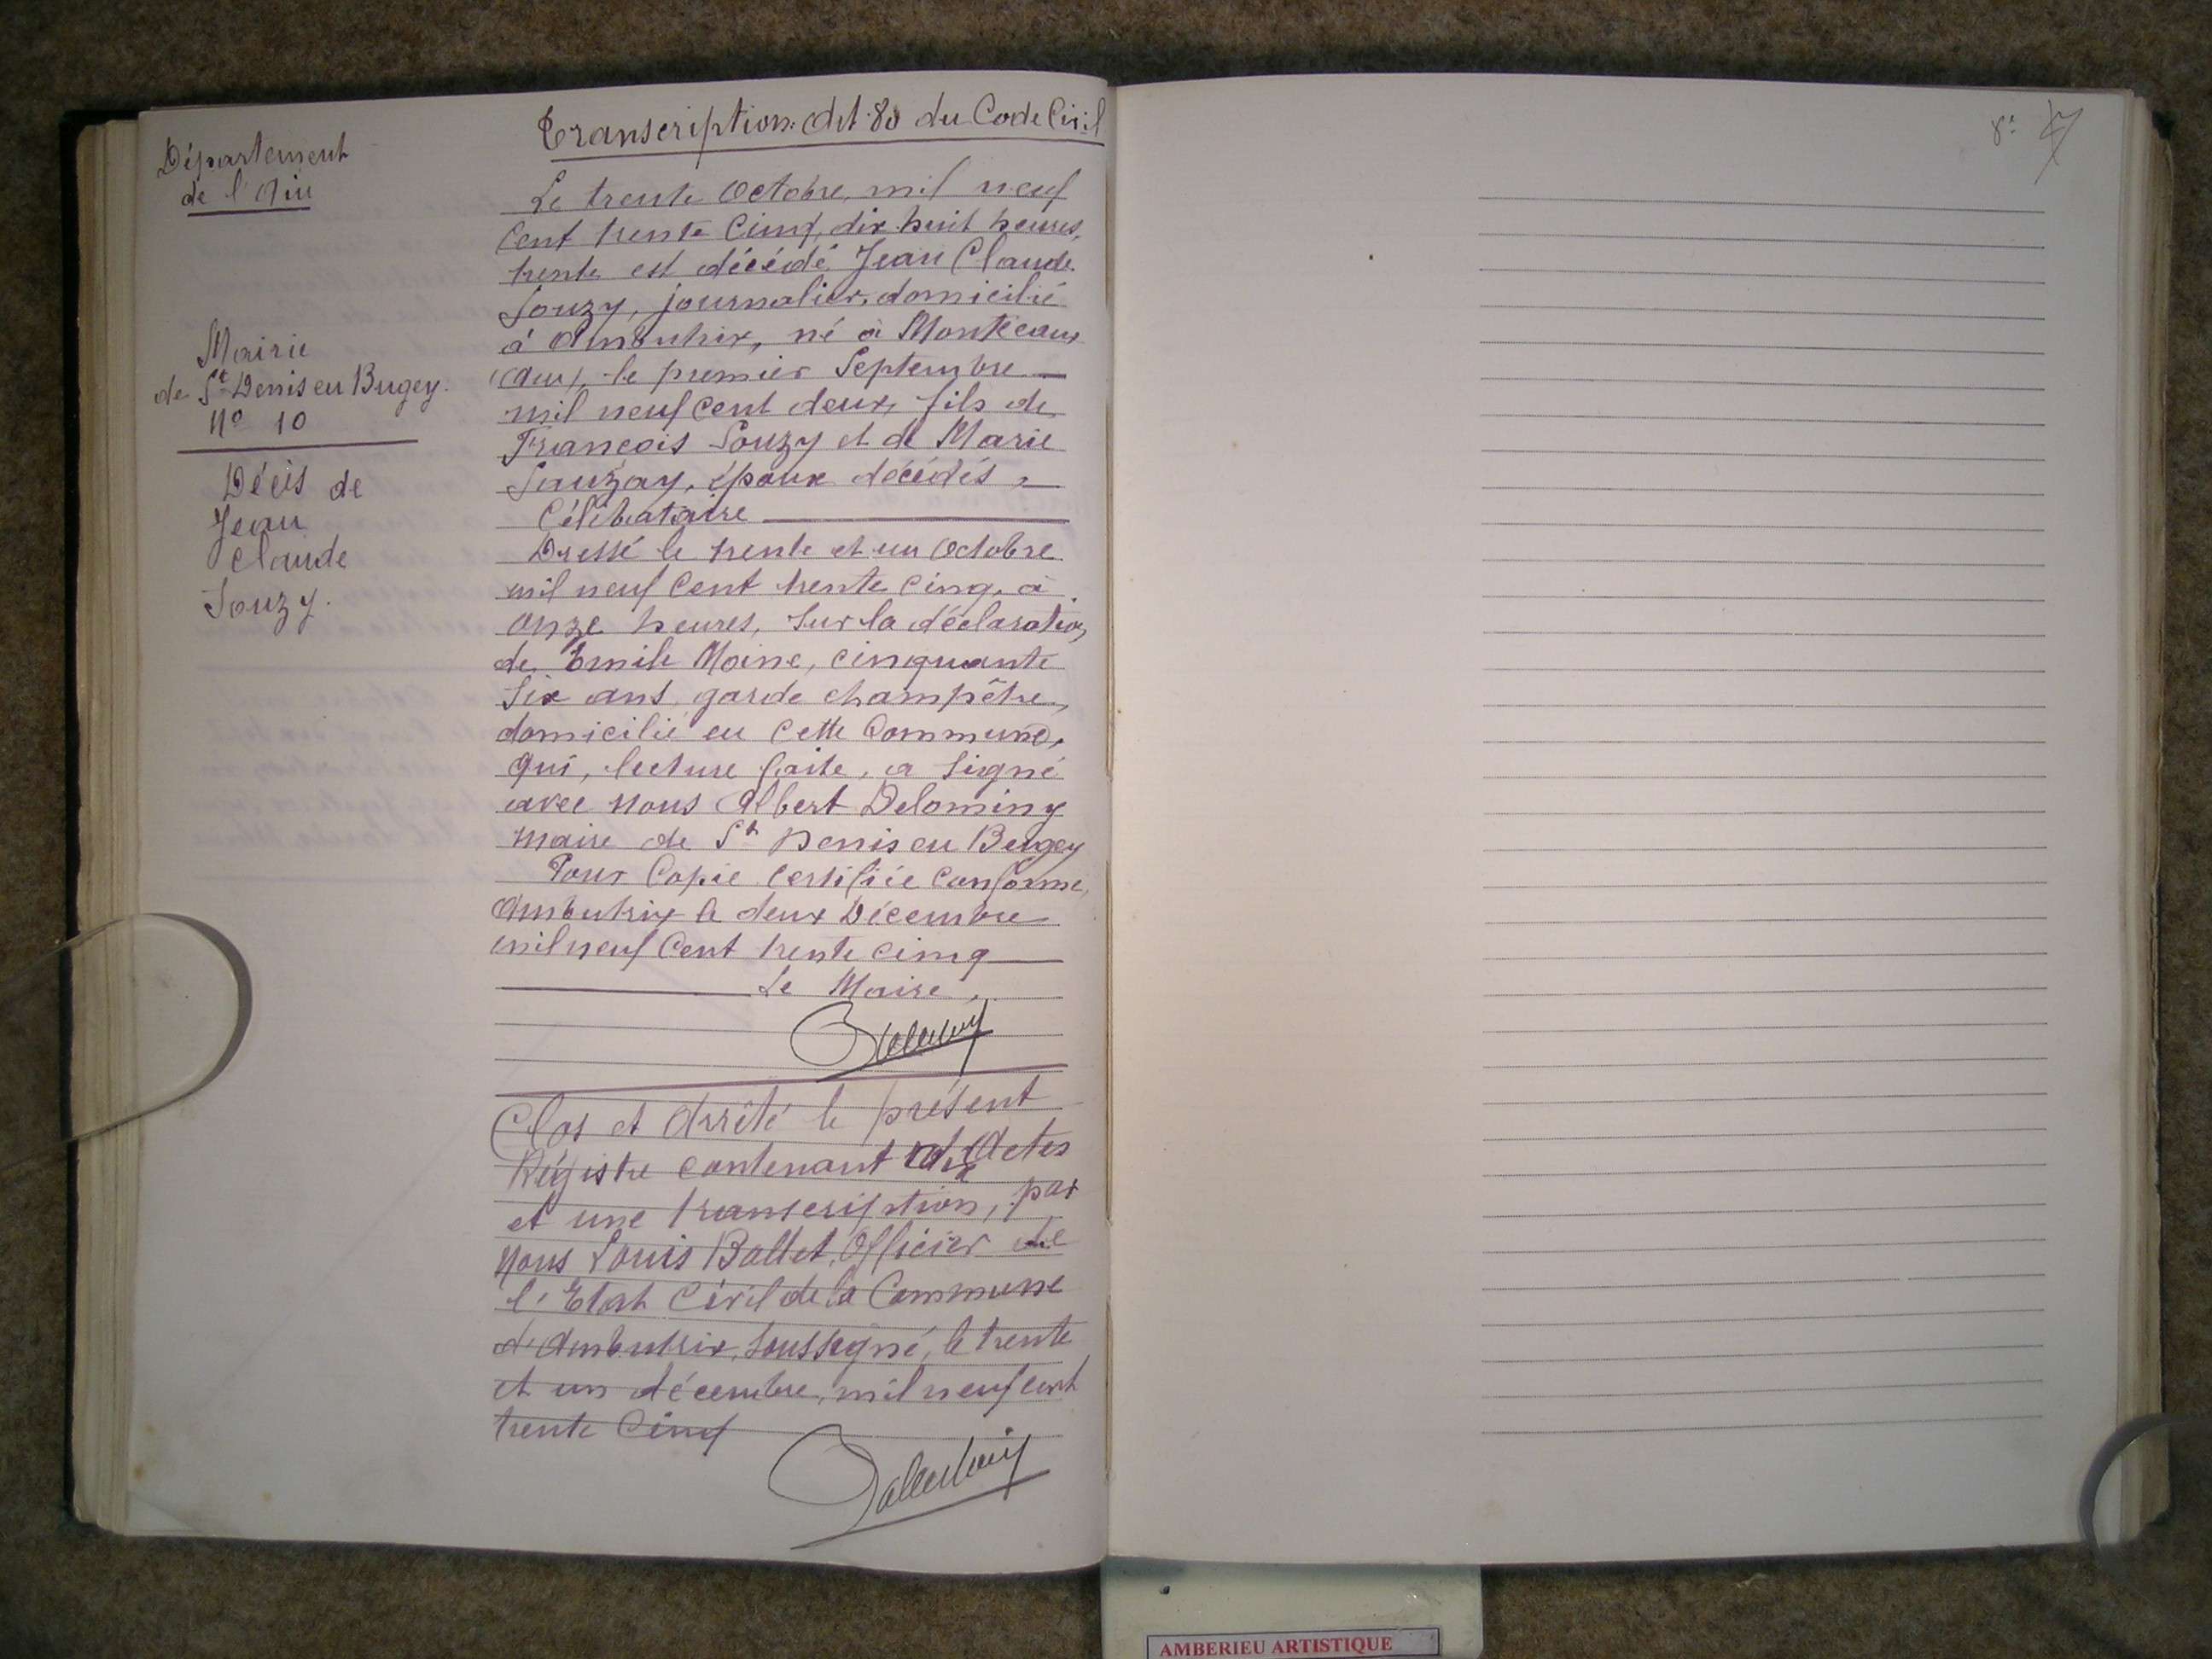 Département
de l'Ain
Mairie
de St Denis en Bugey.
No 10
Décès de
Jean
Claude
Souzy.
Transcription: Art. 80 du Code Civil
Le trente Octobre, mil neuf
Cent trente Cinq, dix huit heures,
trente est décédé Jean Claude
Souzy, journalier, domicilié
à Ambutrix, né à Montceaux
(Ain), le premier Septembre
mil neuf cent deux, fils de
François Souzy et de Marie
Sauzay, époux décédés,
Célibataire
Dressé le trente et un Octobre
mil neuf Cent trente cinq, à
onze heures, sur la déclaration
de Emile Moine, cinquante
six ans, garde champêtre,
domicilié en Cette Commune,
qui, lecture faite, a signé
avec nous Albert Delominy
maire de St Denis en Bugey
Pour Copie Certifiée Conforme,
Ambutrix le deux Décembre
mil neuf Cent trente cinq
Le Maire,
Clos et Arrêté le présent
Régistre contenant Actes
et une transcription, par
nous Louis Ballet, Officier de
l'Etat Civil de la Commune
d'Ambutrix, soussigné, le trente
et un décembre, mil neuf cent
trente Cinq
8e
AMBERIEU ARTISTIQUE